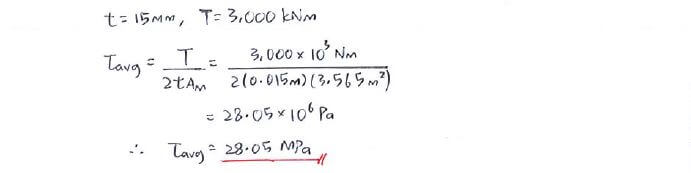 t = 15mm, T = 3,000 kNm
τavg = T / 2tAM = 3,000 × 10³ Nm / 2(0.015m)(3.565m²)
= 28.05 × 10⁶ Pa
∴ τavg = 28.05 MPa